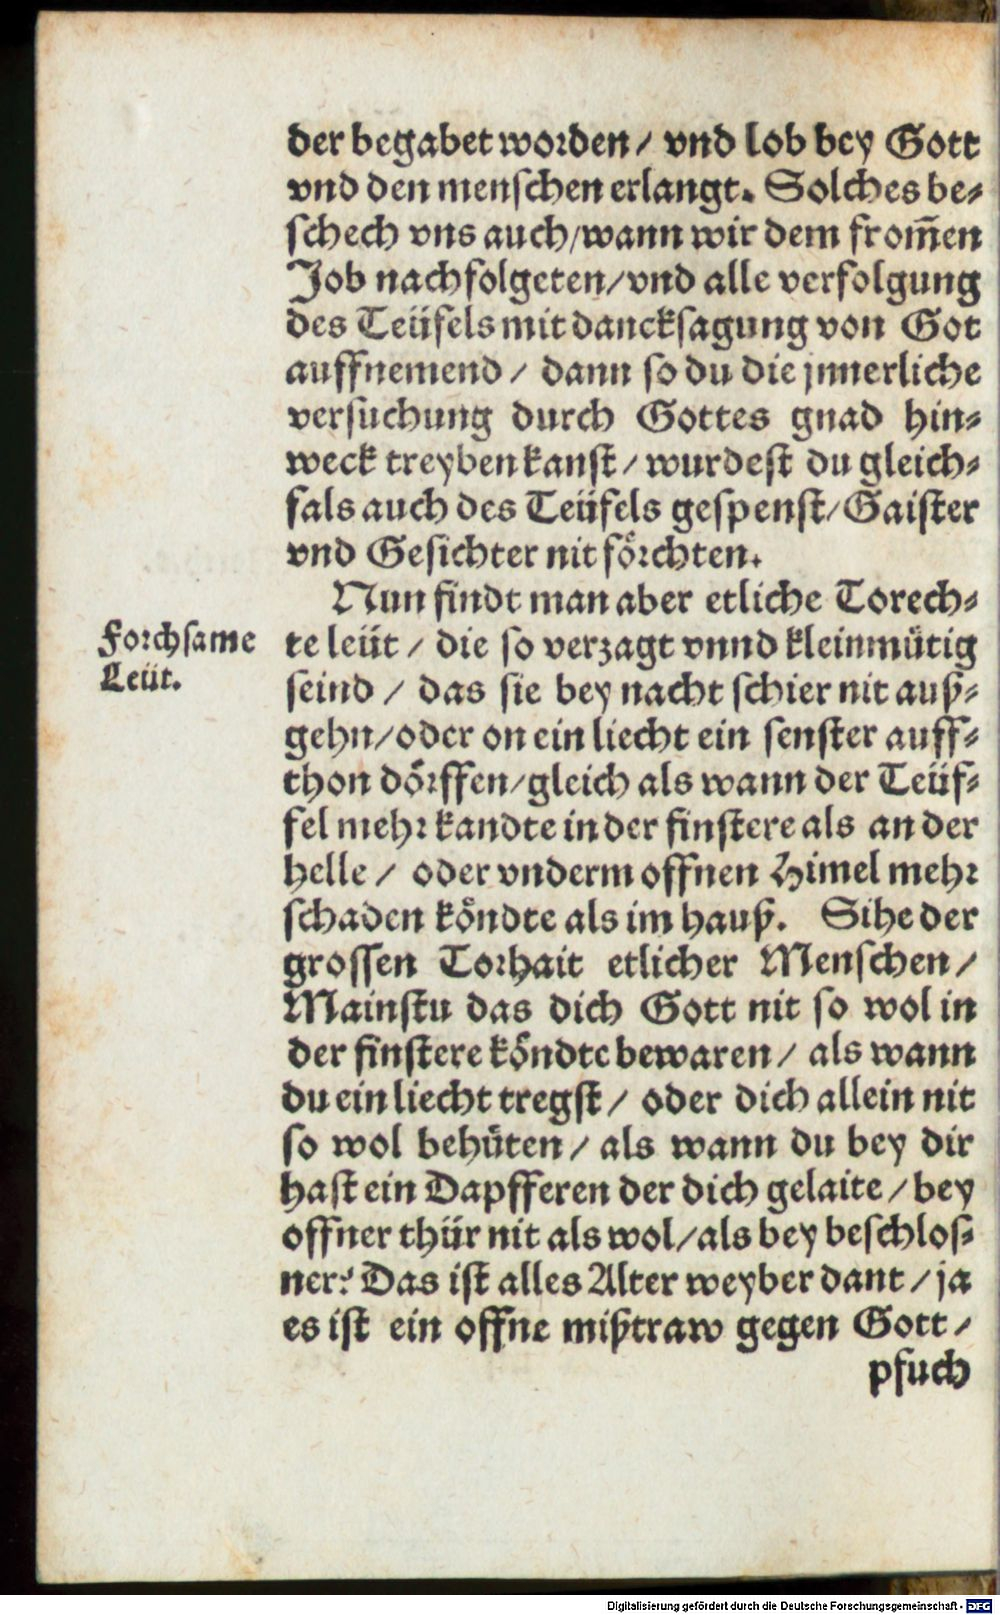 der begabet worden / vnd lob bey Gott
vnd den menschen erlangt. Solches be⸗
schech vns auch/wann wir dem from̃en
Job nachfolgeten/vnd alle verfolgung
des Teüfels mit dancksagung von Got
auffnemend / dann so du die jnnerliche
versuchung durch Gottes gnad hin⸗
weck treyben kanst / wurdest du gleich⸗
fals auch des Teüfels gespenst/Gaister
vnd Gesichter nit förchten.
Nun findt man aber etliche Torech⸗
Forchsame
Leüt.
te leüt / die so verzagt vnnd kleinmütig
seind / das sie bey nacht schier nit auß⸗
gehn/oder on ein liecht ein senster auff⸗
thon dörffen/gleich als wann der Teüf⸗
fel mehr kandte in der finstere als an der
helle / oder vnderm offnen Himel mehr
schaden köndte als im hauß. Sihe der
grossen Torhait etlicher Menschen /
Mainstu das dich Gott nit so wol in
der finstere köndte bewaren / als wann
du ein liecht tregst / oder dich allein nit
so wol behüten / als wann du bey dir
hast ein Dapfferen der dich gelaite / bey
offner thür nit als wol/als bey beschlos⸗
ner? Das ist alles Alter weyber dant / ja
es ist ein offne mißtraw gegen Gott /
pfuch
Digitalisierung gefördert durch die Deutsche Forschungsgemeinschaft - DFG